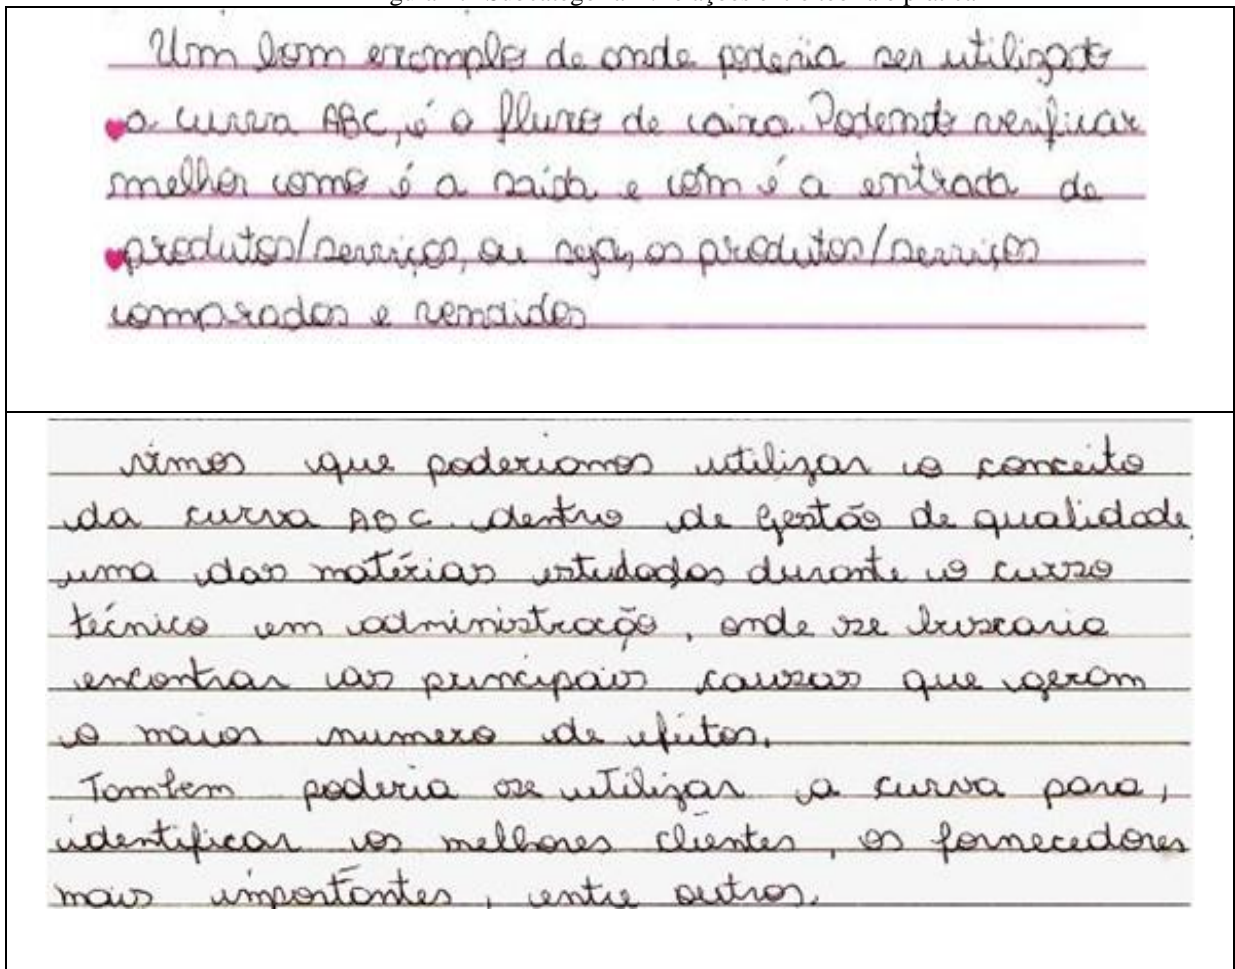 Um bom exemplo de onde poderia ser utilizado
a curva ABC, é o fluxo de caixa. Podendo verificar
melhor como é a saída e com é a entrada de
produtos/serviços, ou seja, os produtos/serviços
comprados e vendidos
vimos que poderiamos utilizar o conceito
da curva ABC dentro de Gestão de qualidade,
uma das matérias estudadas durante o curso
técnico em administração, onde se buscaria
encontrar as principais causas que geram
o maior numero de efeitos.
Tambem poderia se utilizar a curva para,
identificar os melhores clientes, os fornecedores
mais importantes, entre outros.